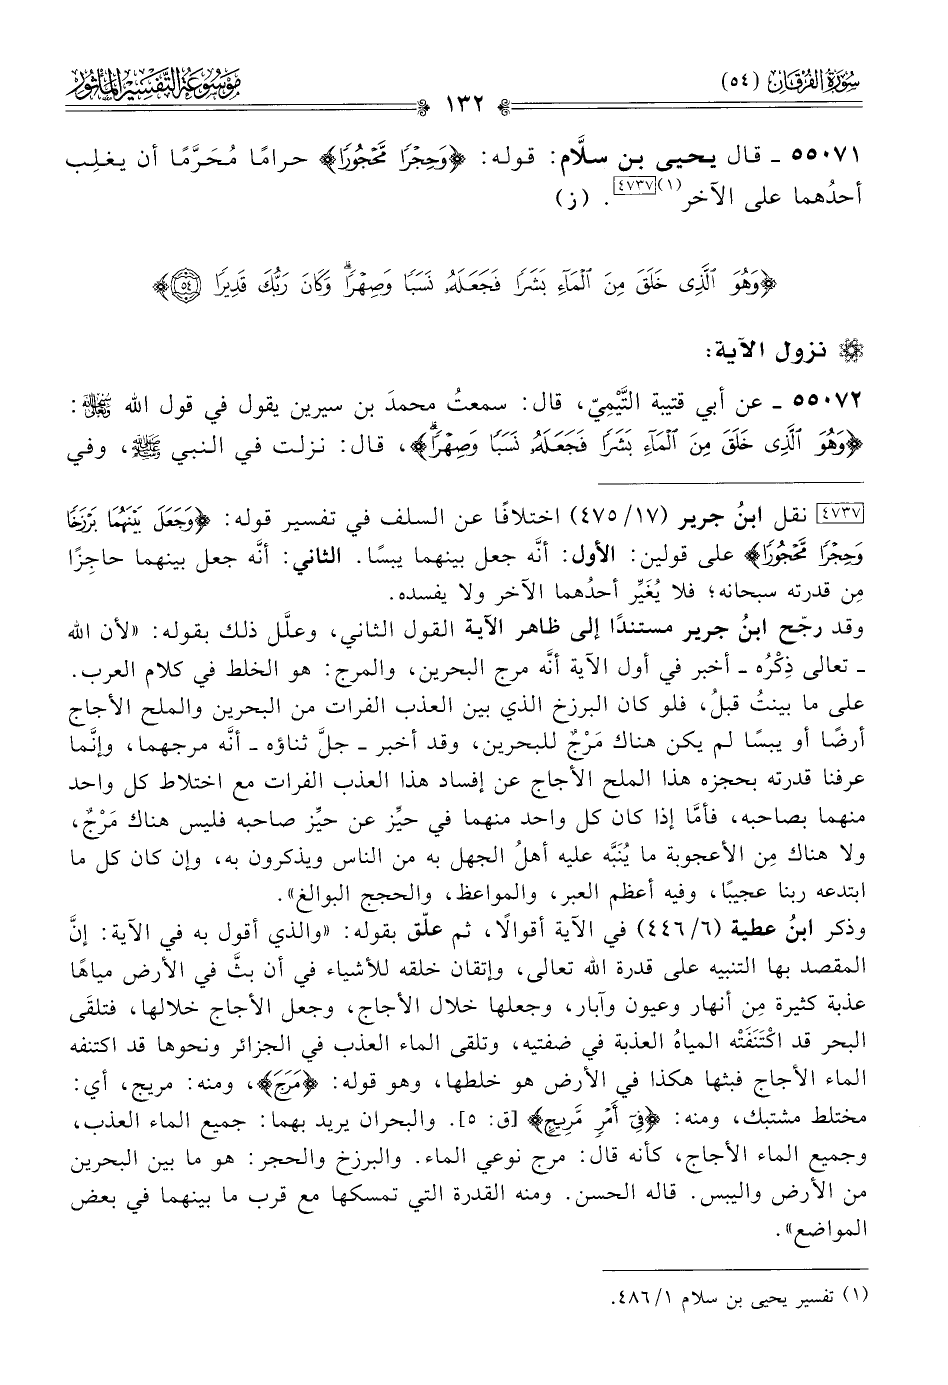 سُورَةُ الفُرْقَان (٥٤)
١٣٢
مَوْسُوعَةُ التَّفْسِيرِ المَأْثُور
٥٥٠٧١ ـ قال يحيى بن سلَّام: قوله: ﴿وَحِجْرًا مَّحْجُورًا﴾ حرامًا مُحَرَّمًا أن يغلِب
أحدُهما على الآخر(١)[٤٧٣٧]. (ز)
﴿وَهُوَ ٱلَّذِى خَلَقَ مِنَ ٱلْمَآءِ بَشَرًا فَجَعَلَهُۥ نَسَبًا وَصِهْرًاۗ وَكَانَ رَبُّكَ قَدِيرًا ٥٤﴾
نزول الآية:
٥٥٠٧٢ ـ عن أبي قتيبة التَّيْمِيّ، قال: سمعتُ محمدَ بن سيرين يقول في قول الله ﷻ:
﴿وَهُوَ ٱلَّذِى خَلَقَ مِنَ ٱلْمَآءِ بَشَرًا فَجَعَلَهُۥ نَسَبًا وَصِهْرًاۗ﴾، قال: نزلت في النبي ﷺ، وفي
[٤٧٣٧] نقل ابنُ جرير (١٧/ ٤٧٥) اختلافًا عن السلف في تفسير قوله: ﴿وَجَعَلَ بَيْنَهُمَا بَرْزَخًا
وَحِجْرًا مَّحْجُورًا﴾ على قولين: الأول: أنَّه جعل بينهما يبسًا. الثاني: أنَّه جعل بينهما حاجِزًا
مِن قدرته سبحانه؛ فلا يُغَيِّر أحدُهما الآخر ولا يفسده.
وقد رجّح ابنُ جرير مستندًا إلى ظاهر الآية القول الثاني، وعلَّل ذلك بقوله: «لأن الله
ـ تعالى ذِكْرُه ـ أخبر في أول الآية أنَّه مرج البحرين، والمرج: هو الخلط في كلام العرب.
على ما بينتُ قبلُ، فلو كان البرزخ الذي بين العذب الفرات من البحرين والملح الأجاج
أرضًا أو يبسًا لم يكن هناك مَرْجٌ للبحرين، وقد أخبر ـ جلَّ ثناؤه ـ أنَّه مرجهما، وإنَّما
عرفنا قدرته بحجزه هذا الملح الأجاج عن إفساد هذا العذب الفرات مع اختلاط كل واحد
منهما بصاحبه، فأمَّا إذا كان كل واحد منهما في حيِّز عن حيِّز صاحبه فليس هناك مَرْجٌ،
ولا هناك مِن الأعجوبة ما يُنَبَّه عليه أهلُ الجهل به من الناس ويذكرون به، وإن كان كل ما
ابتدعه ربنا عجيبًا، وفيه أعظم العبر، والمواعظ، والحجج البوالغ».
وذكر ابنُ عطية (٦/ ٤٤٦) في الآية أقوالًا، ثم علّق بقوله: «والذي أقول به في الآية: إنَّ
المقصد بها التنبيه على قدرة الله تعالى، وإتقان خلقه للأشياء في أن بثَّ في الأرض مياهًا
عذبة كثيرة مِن أنهار وعيون وآبار، وجعلها خلال الأجاج، وجعل الأجاج خلالها، فتلقَى
البحر قد اكْتَنَفَتْه المياهُ العذبة في ضفتيه، وتلقى الماء العذب في الجزائر ونحوها قد اكتنفه
الماء الأجاج فبثها هكذا في الأرض هو خلطها، وهو قوله: ﴿مَرَجَ﴾، ومنه: مريج، أي:
مختلط مشتبك، ومنه: ﴿فِىٓ أَمْرٍ مَّرِيجٍ﴾ [ق: ٥]. والبحران يريد بهما: جميع الماء العذب،
وجميع الماء الأجاج، كأنه قال: مرج نوعي الماء. والبرزخ والحجر: هو ما بين البحرين
من الأرض واليبس. قاله الحسن. ومنه القدرة التي تمسكها مع قرب ما بينهما في بعض
المواضع».
(١) تفسير يحيى بن سلام ١/ ٤٨٦.